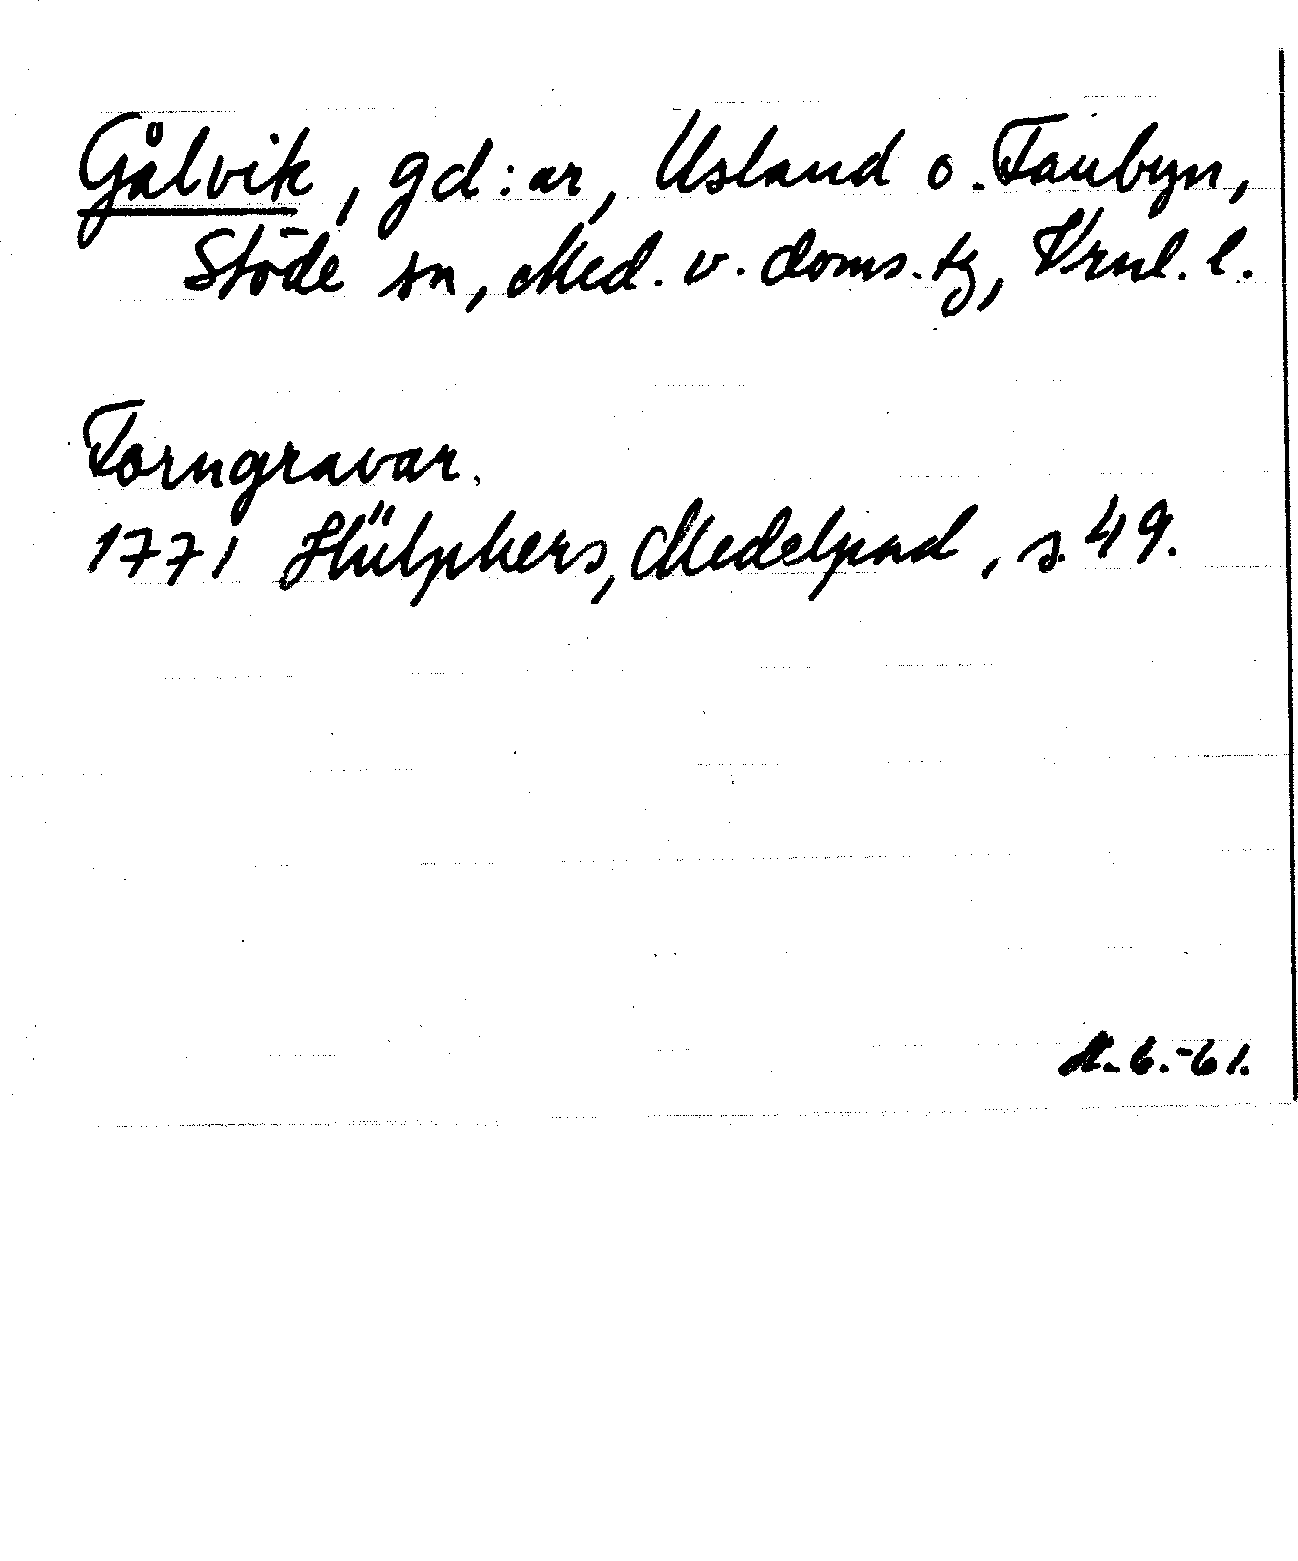 Gålvik, gd:ar, Usland o. Fanbyn,
Stöde sn, Med. v. doms. tg, Vrnl. l.
Forngravar.
1771 Hülphers, Medelpad, s. 49.
M. 6.-61.